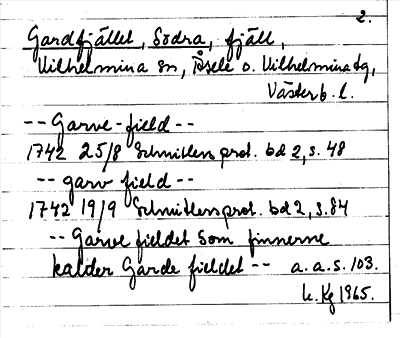 2.
Gardfjället, Södra, fjäll,
Vilhelmina sn, Åsele o. Vilhelmina tg,
Västerb. l.
-- Garve-field --
1742 25/8 Schnitlers prot. bd 2, s. 48
-- garv field --
1742 19/9 Schnitlers prot. bd 2, s. 84
-- Garve fieldet som finnerne
kalder Garde fieldet -- a. a. s. 103.
K. Kg 1965.